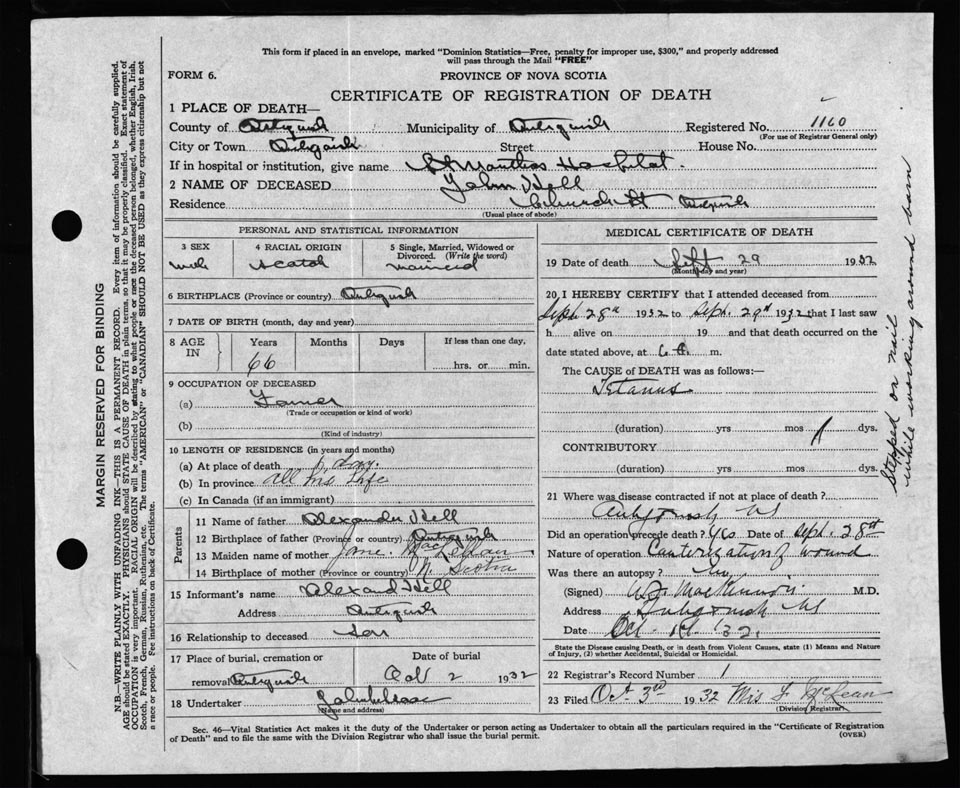 This form if placed in an envelope, marked "Dominion Statistics—Free, penalty for improper use, $300," and properly addressed
will pass through the Mail "FREE"
FORM 6.
PROVINCE OF NOVA SCOTIA
CERTIFICATE OF REGISTRATION OF DEATH
1 PLACE OF DEATH—
County of Antigonish Municipality of Antigonish Registered No. 1160
(For use of Registrar General only)
City or Town Antigonish Street House No.
If in hospital or institution, give name St Marthas Hospital.
2 NAME OF DECEASED John Hell
Residence Church St Antigonish
(Usual place of abode)
PERSONAL AND STATISTICAL INFORMATION
3 SEX 4 RACIAL ORIGIN 5 Single, Married, Widowed or
Divorced. (Write the word)
male Scotch married
6 BIRTHPLACE (Province or country) Antigonish
7 DATE OF BIRTH (month, day and year)
8 AGE IN Years Months Days If less than one day,
66 hrs. or min.
9 OCCUPATION OF DECEASED
(a) Farmer
(Trade or occupation or kind of work)
(b)
(Kind of industry)
10 LENGTH OF RESIDENCE (in years and months)
(a) At place of death 1 day.
(b) In province All his life
(c) In Canada (if an immigrant)
Parents
11 Name of father Alexander Hell
12 Birthplace of father (Province or country) Antigonish
13 Maiden name of mother Jane MacLellan
14 Birthplace of mother (Province or country) N. Scotia
15 Informant's name Hell
Address Antigonish
16 Relationship to deceased son
17 Place of burial, cremation or Date of burial
removal Antigonish Oct 2 1932
18 Undertaker
(Name and address)
MEDICAL CERTIFICATE OF DEATH
19 Date of death Sept 29 1932
(Month, day and year)
20 I HEREBY CERTIFY that I attended deceased from
Sept. 28th 1932 to Sept. 29th 1932 that I last saw
h alive on 19 and that death occurred on the
date stated above, at 6 A. m.
The CAUSE of DEATH was as follows:—
Tetanus
(duration) yrs mos 1 dys.
CONTRIBUTORY
(duration) yrs mos dys.
Stepped on nail
while working around barn
21 Where was disease contracted if not at place of death?
Antigonish NS
Did an operation precede death? Yes Date of Sept. 28th
Nature of operation Cauterization of wound
Was there an autopsy? No
(Signed) MacKinnon M.D.
Address Antigonish NS
Date Oct. 1st '32.
State the Disease causing Death, or in death from Violent Causes, state (1) Means and Nature
of Injury, (2) whether Accidental, Suicidal or Homicidal.
22 Registrar's Record Number 1
23 Filed Oct 3rd 1932 Mrs J McLean
(Division Registrar)
Sec. 46—Vital Statistics Act makes it the duty of the Undertaker or person acting as Undertaker to obtain all the particulars required in the "Certificate of Registration
of Death" and to file the same with the Division Registrar who shall issue the burial permit.
(OVER)
MARGIN RESERVED FOR BINDING
N.B.—WRITE PLAINLY WITH UNFADING INK—THIS IS A PERMANENT RECORD. Every item of information should be carefully supplied.
AGE should be stated EXACTLY. PHYSICIANS should STATE CAUSE OF DEATH in plain terms, so that it may be properly classified. Exact statement of
OCCUPATION is very important. RACIAL ORIGIN will be described by stating to what people or race the deceased person belonged, whether English, Irish,
Scotch, French, German, Russian, Ruthenian, etc. The terms "AMERICAN" or "CANADIAN" SHOULD NOT BE USED as they express citizenship but not
a race or people. See instructions on back of Certificate.